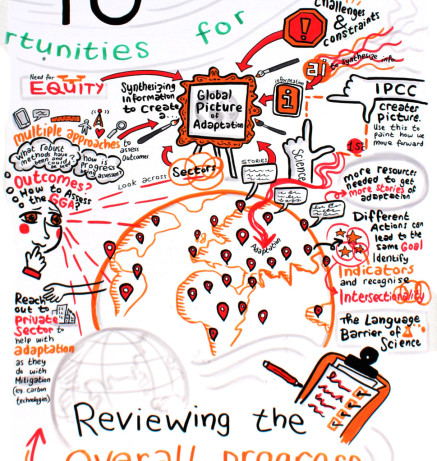 TO
rtunities for
Challenges
&
constraints
Need for
EQUITY
Synthesizing
Information
to Create
a...
Global
Picture
of
Adaptation
information
i
ai to synthesize info
IPCC
creater
picture.
Use this to
paint how we
move forward
1st
Science
multiple approaches to
assess
outcomes
What robust
methods have
been used and
could
How is
progress
being assessed?
Look across
Sectors
STORIES
Adaptation
Outcomes?
How to Assess
the GGA?
more resources
needed to get
more stories of
adaptation
Different
Actions can
lead to the
same Goal
Identify
Indicators
and recognise
Intersectionality
The Language
Barrier of
Science
Reach
out to
Private
Sector to
help with
adaptation
as they
do with
Mitigation
(eg. carbon
technologies)
Reviewing the
Overall progress